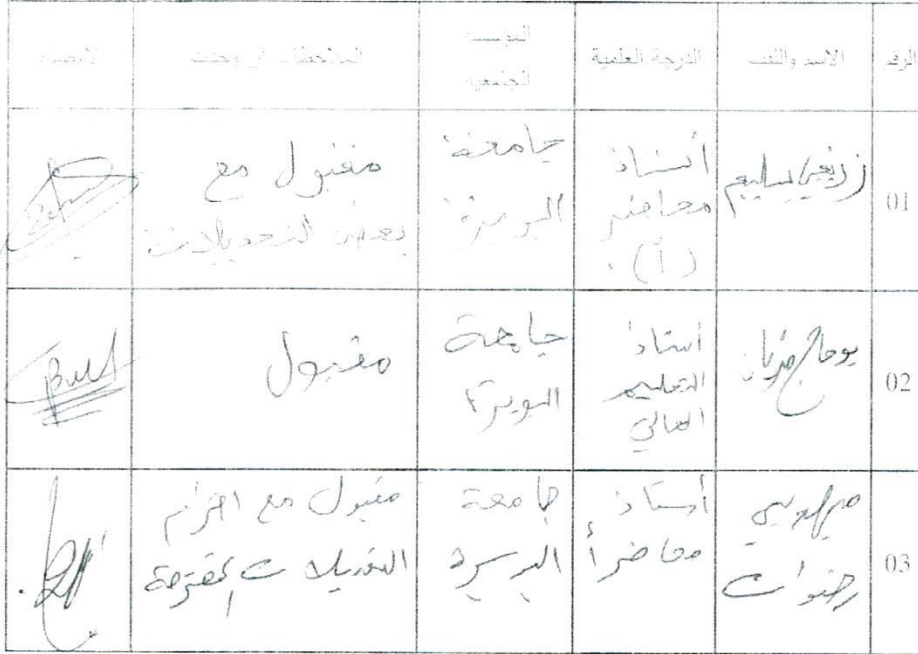 الرقم الاسم واللقب الدرجة العلمية المؤسسة الجامعية الملاحظات إن وجدت الامضاء
01 زريقي سليم أستاذ محاضر (أ). جامعة البويرة مقبول مع بعض التعديلات
02 بوحاج مزيان أستاذ التعليم العالي جامعة البويرة مقبول
03 أستاذ محاضر أ جامعة البويرة مقبول مع احترام التعديلات المقترحة